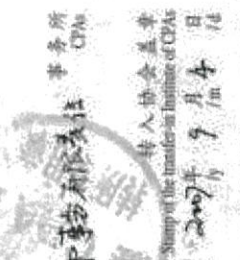 事务所
CPAs
事务所有限责任
转入协会盖章
Stamp of the transfer-in Institute of CPAs
2007年 9月 4日
/y /m /d